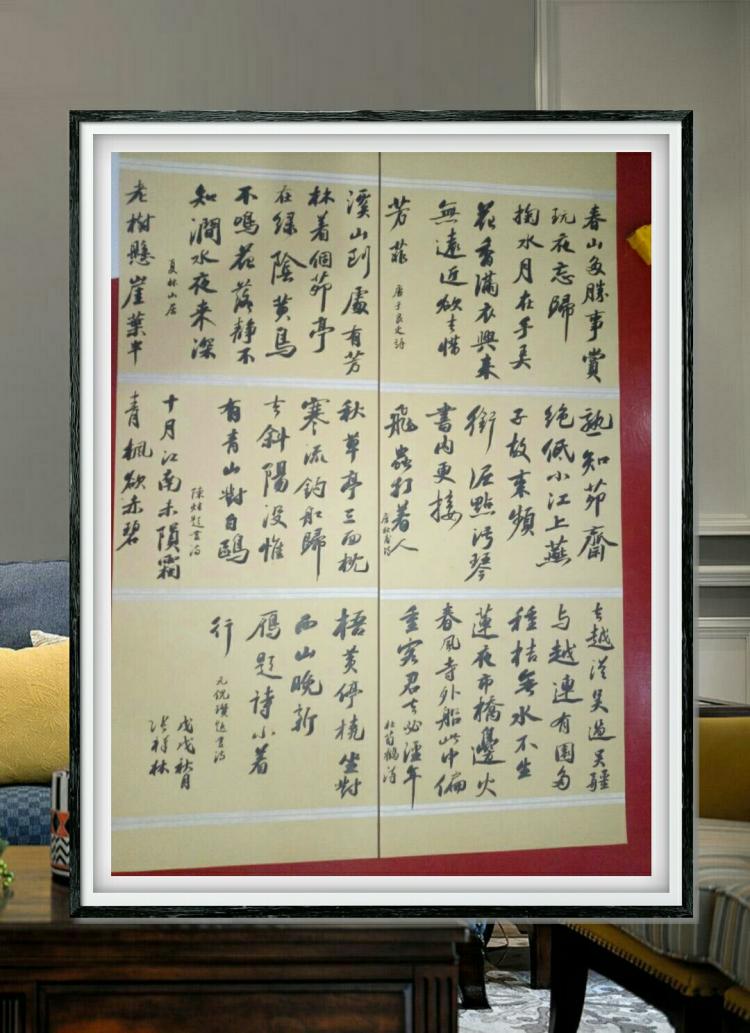 春山多勝事賞
玩夜忘歸
掬水月在手弄
花香滿衣興来
無遠近欲去惜
芳菲
唐于良史詩
熟知茆齋
绝低小江上燕
子故来頻
銜泥點污琴
書内更接
飛蟲打著人
唐杜甫詩
去越從吴過吴疆
与越連有園多
種桔無水不生
蓮夜市橋邊火
春風寺外船此中偏
重客君去必年
杜荀鶴詩
溪山到處有芳
林着個茆亭
在绿陰黄鳥
不鳴花落静不
知澗水夜来深
夏林山居
老樹懸崖葉半
秋草亭三面枕
寒流釣船歸
去斜陽没惟
有青山對白鷗
陳題畫詩
十月江南未隕霜
青楓欲赤碧
梧黄停橈坐對
西山晚新
雁題詩小着
行
元倪瓚題畫詩
戊戌秋月
张祥林